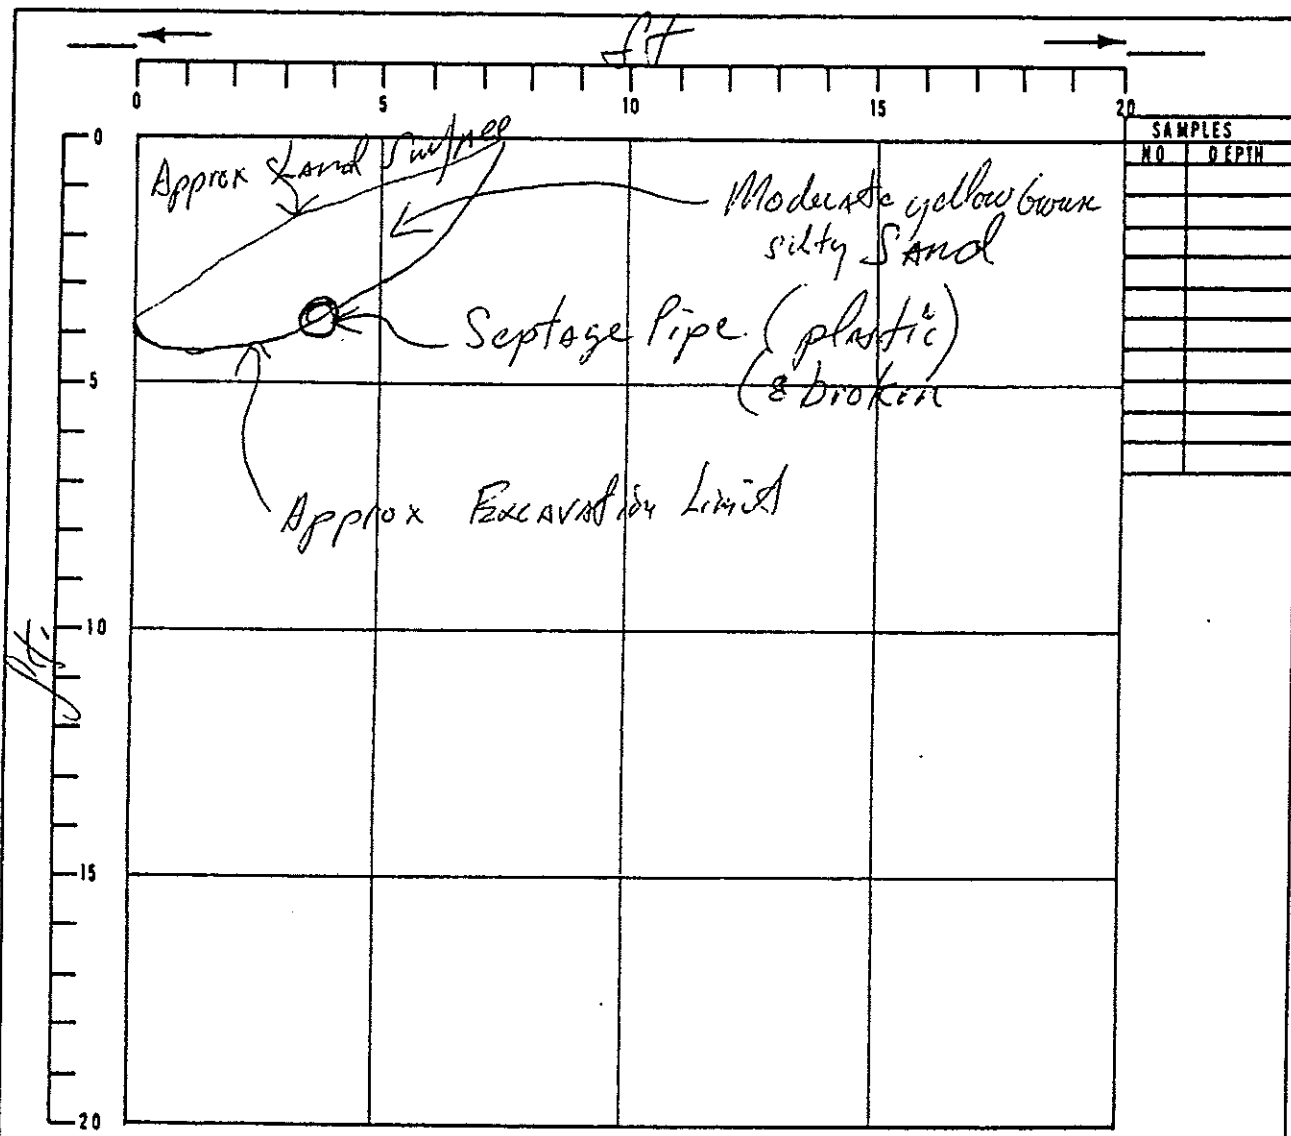 ft
0 5 10 15 20
SAMPLES
NO DEPTH
0
Approx Land Surface
Moderate yellow brown
silty Sand
Septage Pipe (plastic)
(& broken
5
Approx Excavation Limit
10
ft.
15
20